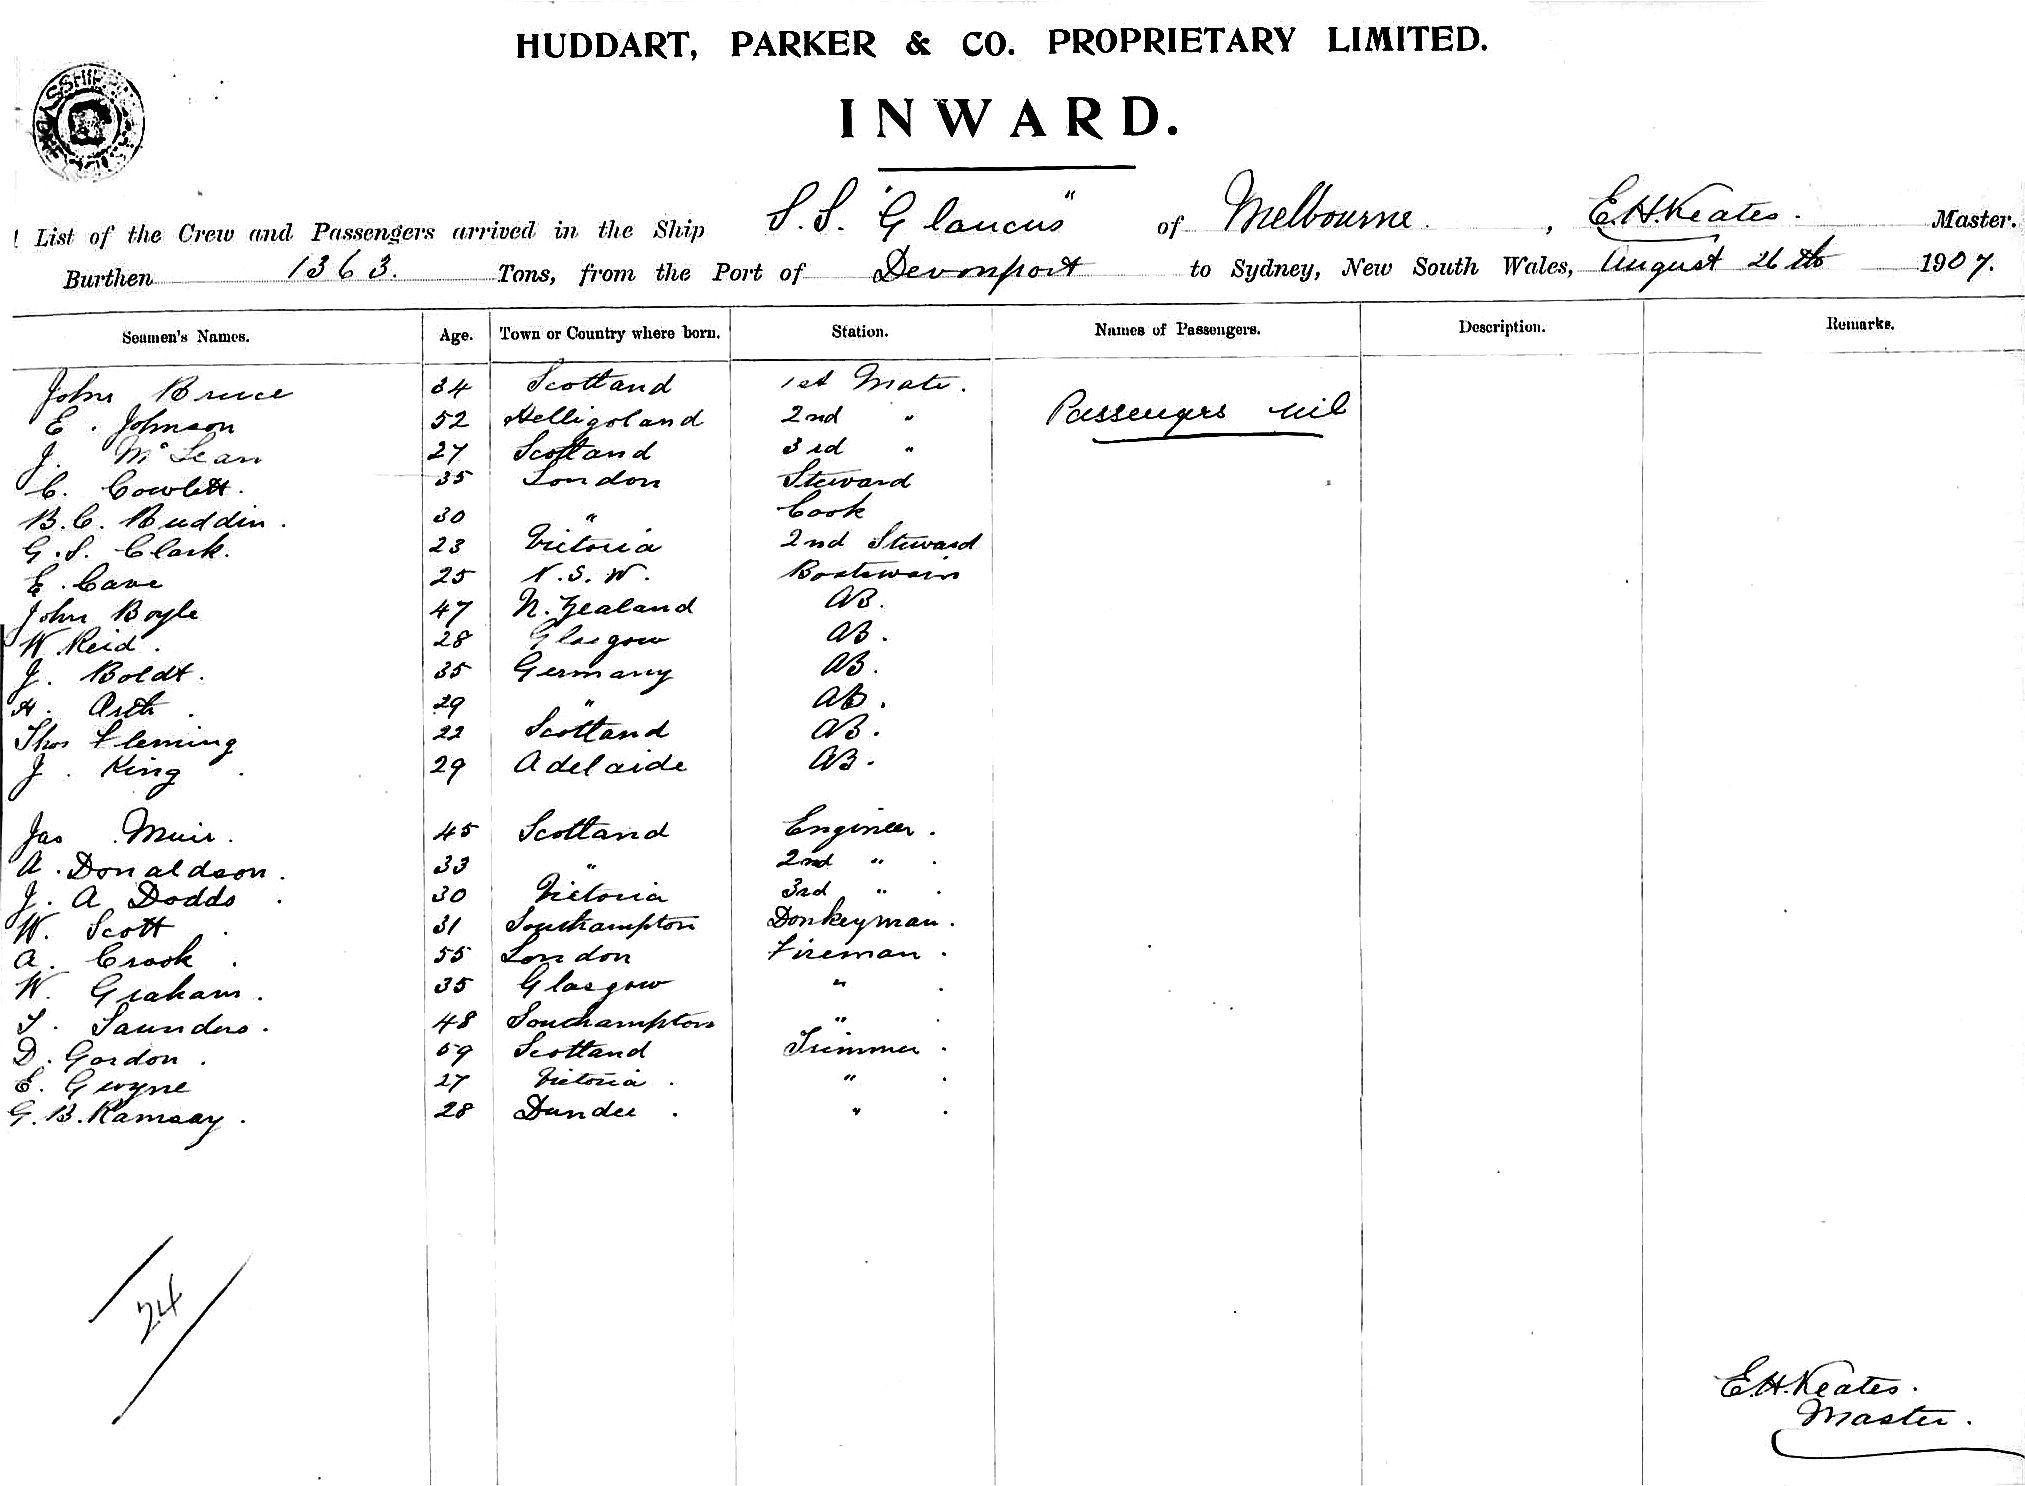 HUDDART, PARKER & CO. PROPRIETARY LIMITED.
INWARD.
List of the Crew and Passengers arrived in the Ship S.S. "Glaucus" of Melbourne. , E.H.Keates. Master.
Burthen 1363. Tons, from the Port of Devonport to Sydney, New South Wales, August 26th 1907.
Seamen's Names. Age. Town or Country where born. Station. Names of Passengers. Description. Remarks.
John Bruce 34 Scotland 1st Mate.
E. Johnson 52 Helligoland 2nd " Passengers nil
J. McLean 27 Scotland 3rd "
C. Cowlett. 35 London Steward
B.C. Ruddin. 30 " Cook
G.S. Clark. 23 Victoria 2nd Steward
E. Cave 25 N.S.W. Boatswain
John Boyle 47 N. Zealand AB.
W. Reid. 28 Glasgow AB.
J. Boldt. 35 Germany AB.
H. 29 " AB.
Thos Fleming 22 Scotland AB.
J. King 29 Adelaide AB.
Jas Muir. 45 Scotland Engineer.
A. Donaldson. 33 " 2nd "
J. A Dodds 30 Victoria 3rd "
W. Scott 31 Southampton Donkeyman.
A. Crook 55 London Fireman.
W. Graham. 35 Glasgow "
T. Saunders. 48 Southampton "
D. Gordon. 59 Scotland Trimmer.
E. Gwyne 27 Victoria. "
G.B. Ramsay. 28 Dundee. "
24
E.H.Keates.
Master.